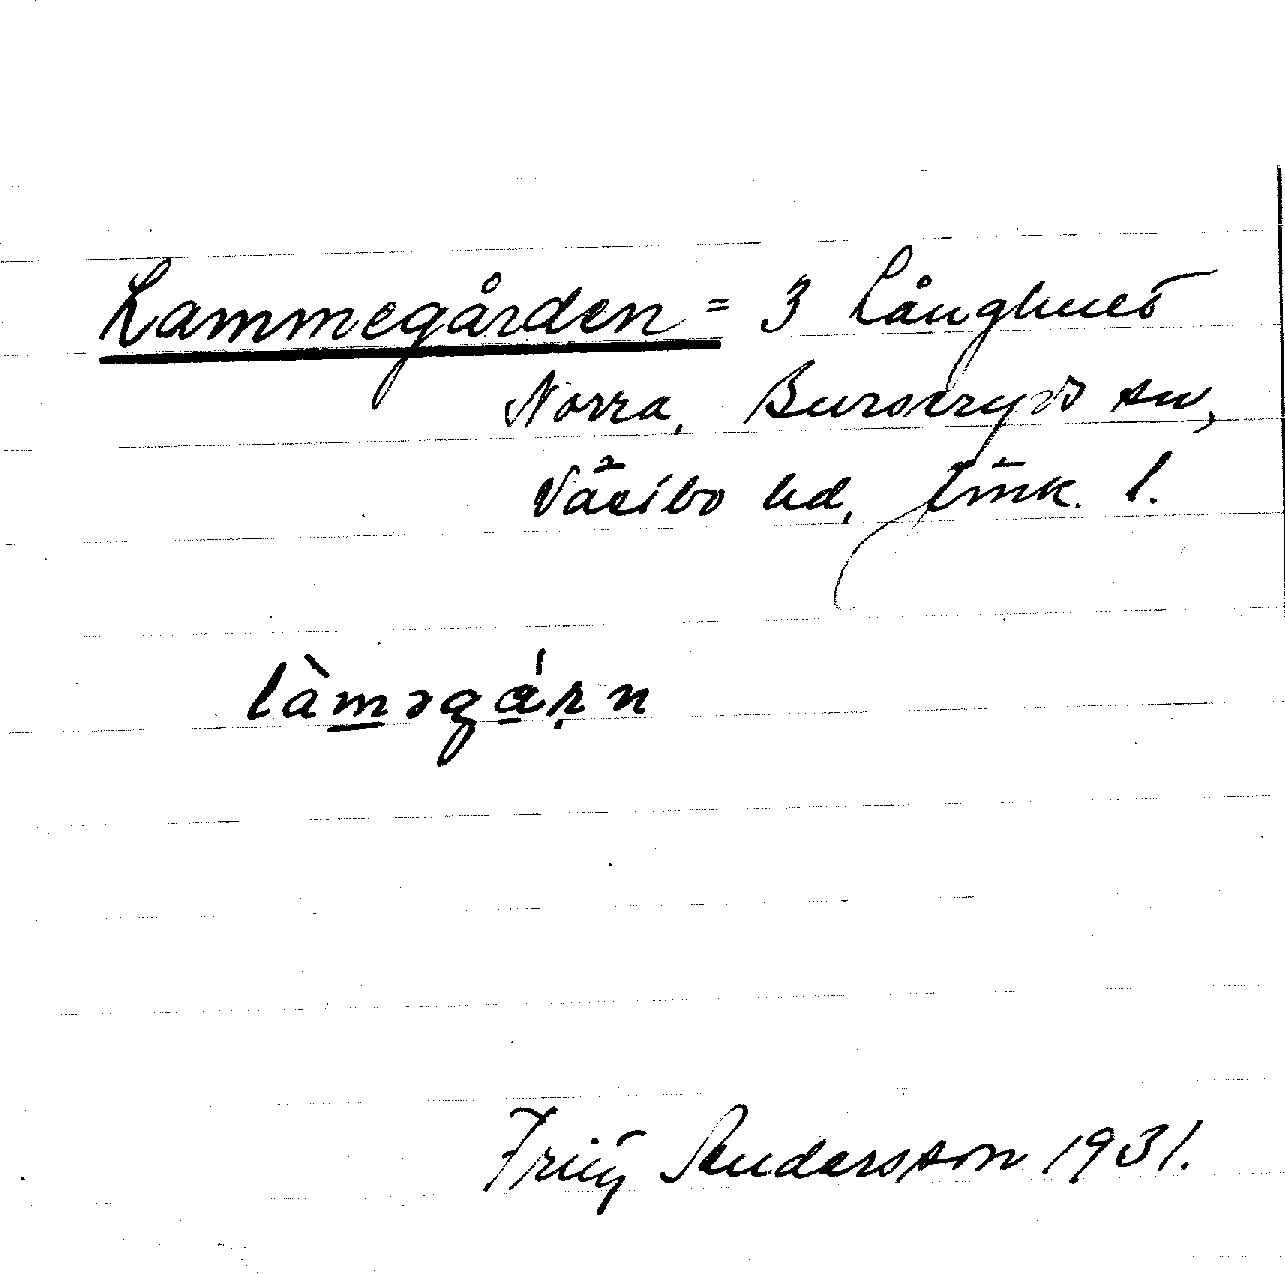 Lammegården = 3 Långhult
Norra, Burseryds sn,
Västbo hd, Jönk. l.
làmǝgárn
Fritz Andersson 1931.